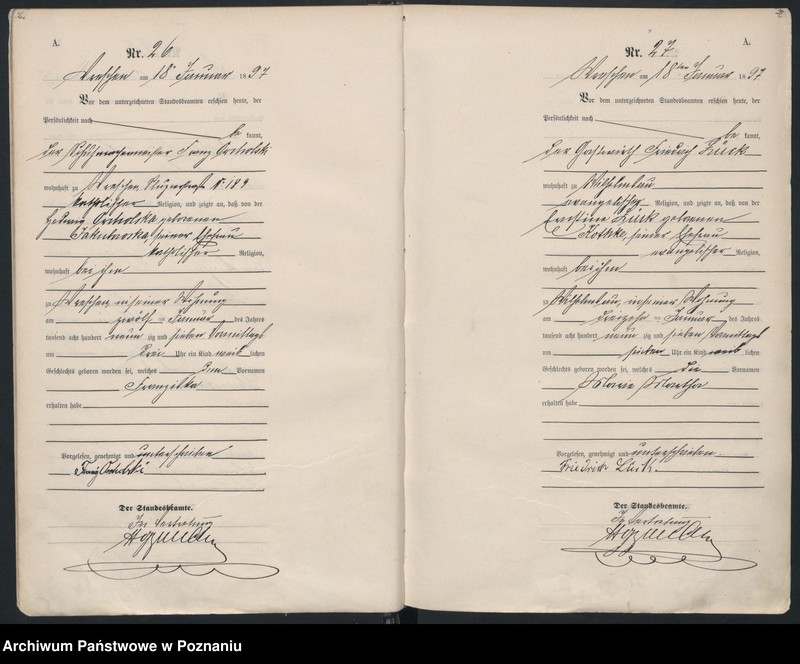 A.
Nr. 26
Wreschen am 18. Januar 1897
Vor dem unterzeichneten Standesbeamten erschien heute, der
Persönlichkeit nach
be kannt,
der Schuhmachermeister Franz
wohnhaft zu Wreschen, № 189
katholischer Religion, und zeigte an, daß von der
geborenen
seiner Ehefrau
katholischer Religion,
wohnhaft bei ihm
zu Wreschen, in seiner Wohnung
am zwölften Januar des Jahres
tausend acht hundert neun zig und sieben Vormittags
um drei Uhr ein Kind weib lichen
Geschlechts geboren worden sei, welches den Vornamen
Franziska
erhalten habe
Vorgelesen, genehmigt und unterschrieben
Franz
Der Standesbeamte.
In Vertretung
A.
Nr. 27
Wreschen am 18ten Januar 1897
Vor dem unterzeichneten Standesbeamten erschien heute, der
Persönlichkeit nach
be kannt,
der Gastwirth Friedrich Lück
wohnhaft zu Wilhelmsau
evangelischer Religion, und zeigte an, daß von der
Ernestine Lück geborenen
seiner Ehefrau
evangelischer Religion,
wohnhaft bei ihm
zu Wilhelmsau, in seiner Wohnung
am Januar des Jahres
tausend acht hundert neun zig und sieben Vormittags
um sieben Uhr ein Kind weib lichen
Geschlechts geboren worden sei, welches die Vornamen
Marie Martha
erhalten habe
Vorgelesen, genehmigt und unterschrieben.
Friedrich Lück.
Der Standesbeamte.
In Vertretung
Archiwum Państwowe w Poznaniu